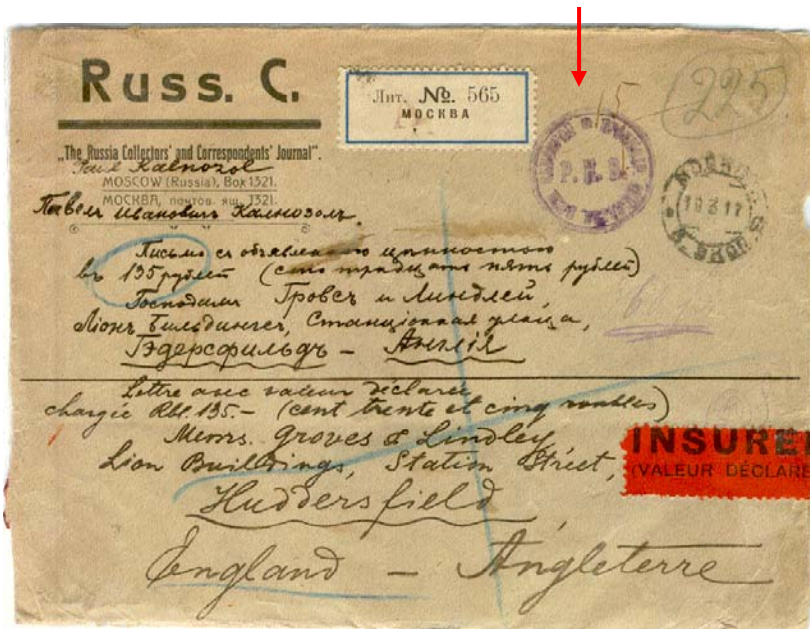 Russ. C.
Лит. № 565
МОСКВА
15
225
„The Russia Collectors' and Correspondents' Journal".
Paul Kalnozol
MOSCOW (Russia), Box 1321.
МОСКВА, почтов. ящ. 1321.
Павелъ Ивановичъ Калнозолъ
Р.Н.В.
19 3 17
Письмо съ объявленною цѣнностью
въ 135 рублей (сто тридцать пять рублей)
Господамъ Гровсъ и Линдлей,
Ліонъ Бильдингсъ, Станціонная улица,
Гэдерсфильдъ — Англія
Lettre avec valeur déclarée
chargée Rbl. 135.— (cent trente et cinq roubles)
Messrs. Groves & Lindley,
Lion Buildings, Station Street,
INSURE
(VALEUR DÉCLARÉ
Huddersfield,
England — Angleterre